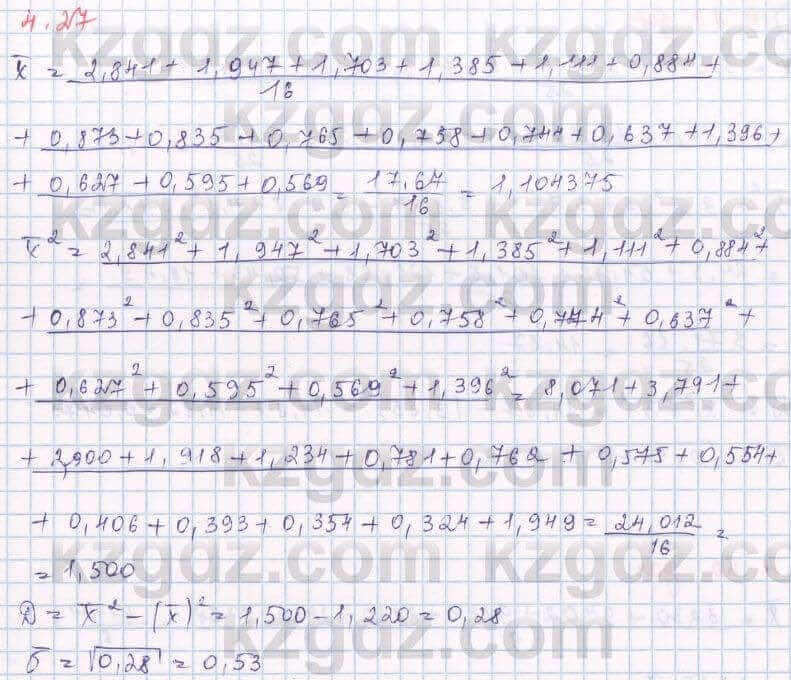 4.27
x̅ = 2,841 + 1,947 + 1,703 + 1,385 + 1,111 + 0,884 +
16
+ 0,873 + 0,835 + 0,765 + 0,758 + 0,744 + 0,637 + 1,396 +
+ 0,627 + 0,595 + 0,569 = 17,67/16 = 1,104375
x̅² = 2,841² + 1,947² + 1,703² + 1,385² + 1,111² + 0,884² +
+ 0,873² + 0,835² + 0,765² + 0,758² + 0,744² + 0,637² +
+ 0,627² + 0,595² + 0,569² + 1,396² = 8,071 + 3,791 +
+ 2,900 + 1,918 + 1,234 + 0,781 + 0,762 + 0,575 + 0,554 +
+ 0,406 + 0,393 + 0,354 + 0,324 + 1,949 = 24,012/16 =
= 1,500
D = x̅² − (x̅)² = 1,500 − 1,220 = 0,28
σ = √0,28 = 0,53
kzgdz.com